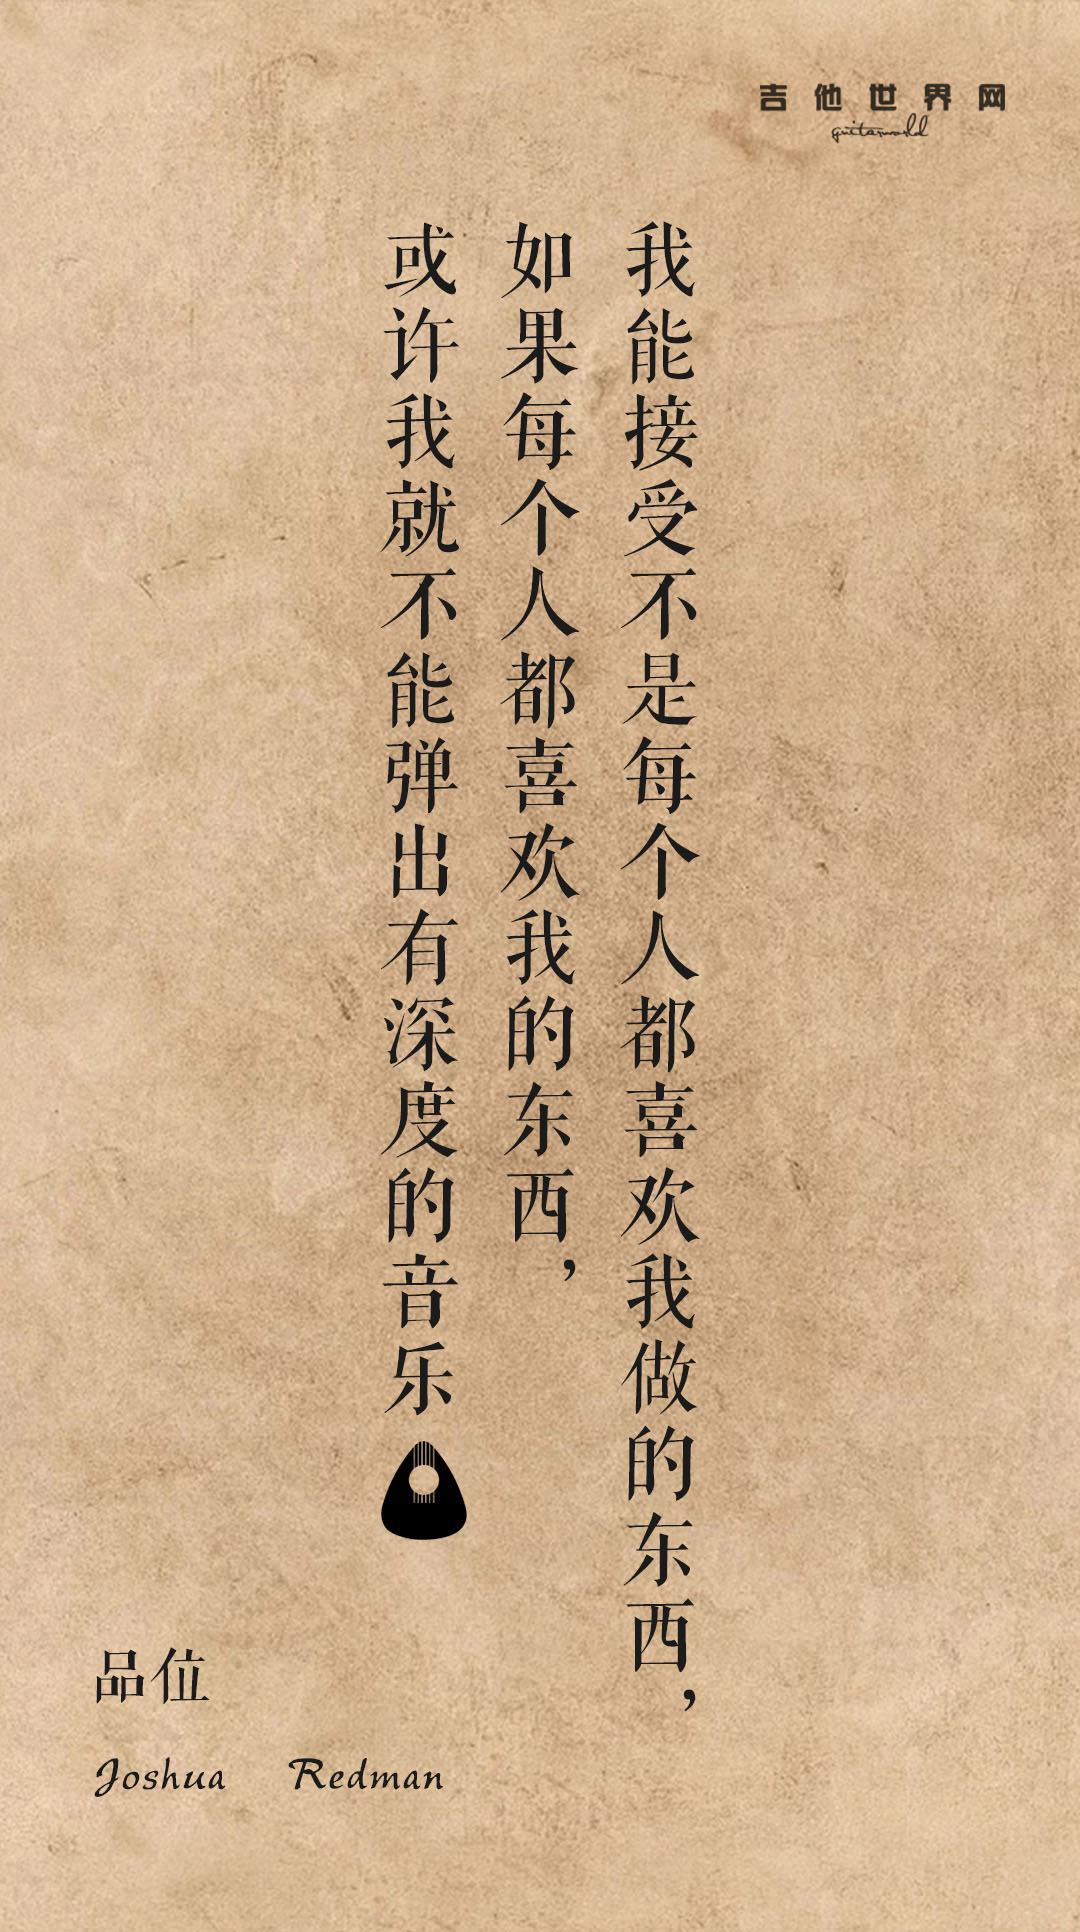 吉他世界网
guitarworld
我能接受不是每个人都喜欢我做的东西，
如果每个人都喜欢我的东西，
或许我就不能弹出有深度的音乐
品位
Joshua Redman